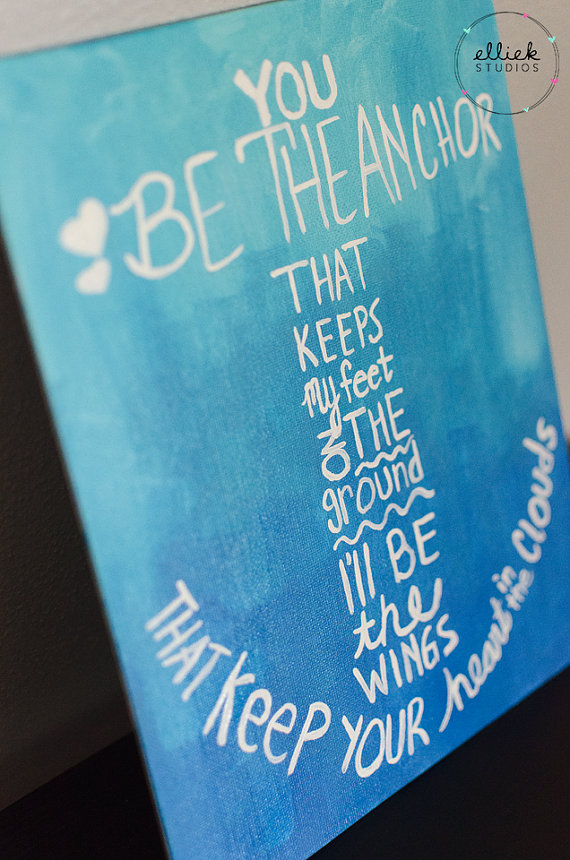 elliek
STUDIOS
YOU
BE THE ANCHOR
THAT
KEEPS
my feet
ON THE
ground
I'll BE
the
WINGS
THAT KEEP YOUR heart in the Clouds